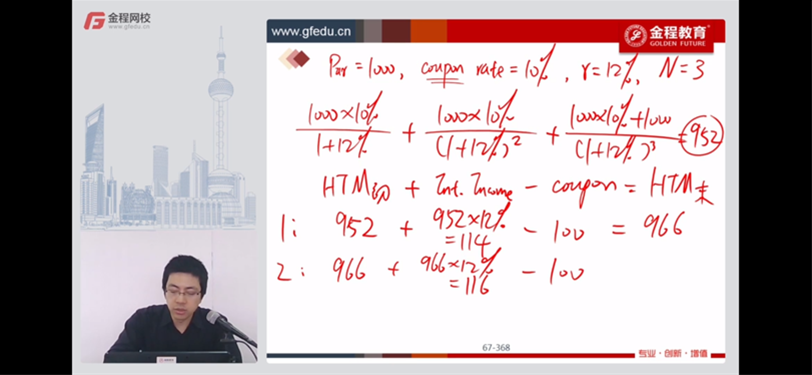 金程网校
www.gfedu.cn
www.gfedu.cn
金程教育
GOLDEN FUTURE
Par = 1000, coupon rate = 10%, r = 12%, N = 3
1000×10% / 1+12% + 1000×10% / (1+12%)² + 1000×10%+1000 / (1+12%)³ = 952
HTM初 + Int. Income - coupon = HTM末
1: 952 + 952×12% - 100 = 966
=114
2: 966 + 966×12% - 100
=116
67-368
专业·创新·增值